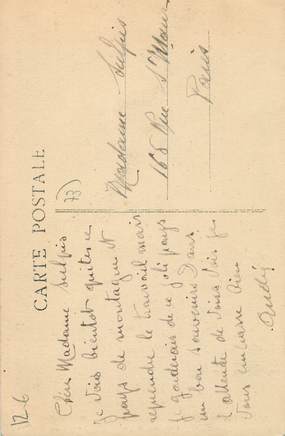 CARTE POSTALE
73)
Madame Sulpis
168 Rue St Maur
Paris
Chère Madame Sulpis
je vais bientôt quitter ce
pays de montagne et
reprendre le travail mais
je garderais de ce joli pays
un bon souvenirs Dans
l'attente de vous voir je
vous embrasse bien
126